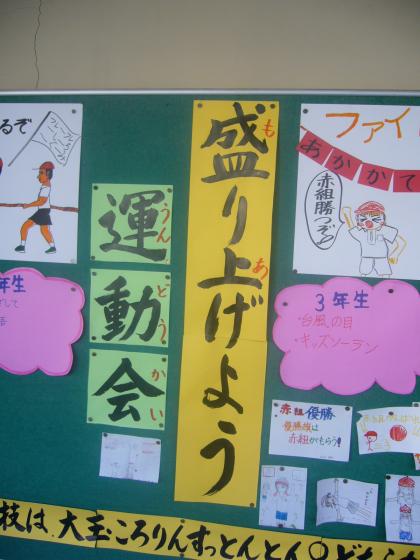 るぞ
運動会
うん
どう
かい
盛り上げよう
も
あ
ファイ
あかかて
赤組勝つぞ
年生
3年生
・台風の目
・キッズソーラン
赤組優勝
優勝旗は
赤組がもらう!
枝は、大玉ころりんすっとんとん